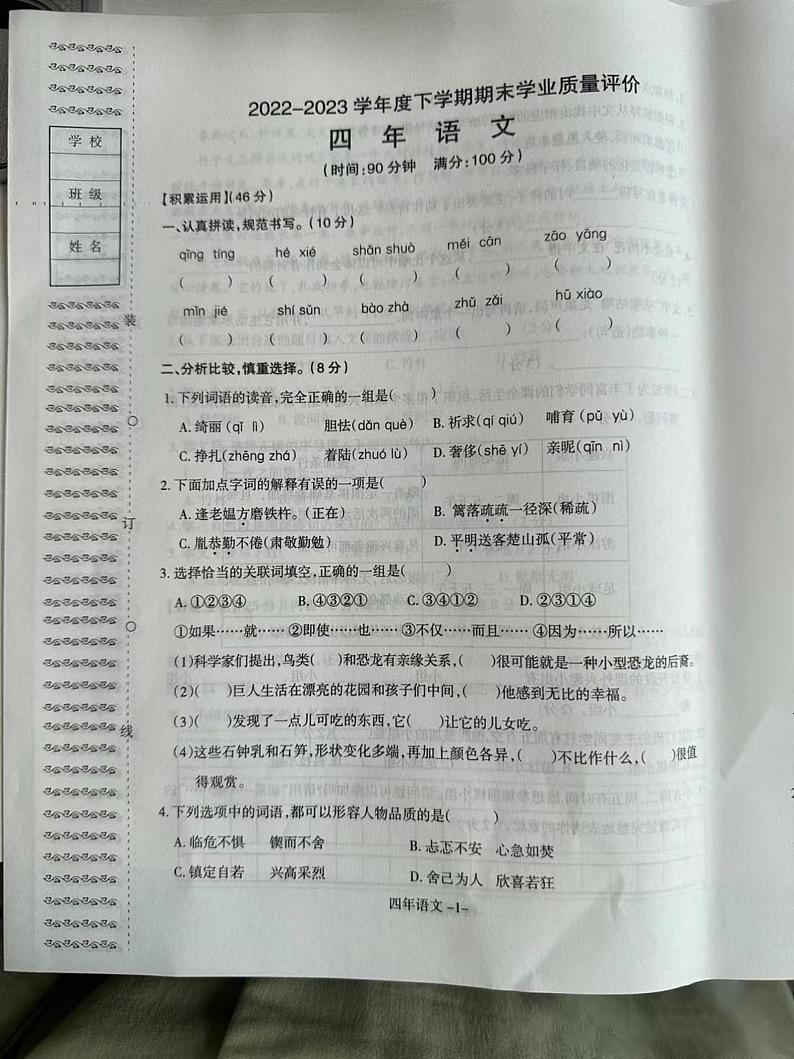 2022-2023学年度下学期期末学业质量评价
四 年 语 文
(时间:90分钟 满分:100分)
学 校
班 级
姓 名
装
订
线
【积累运用】(46分)
一、认真拼读,规范书写。(10分)
qīng tíng hé xié shǎn shuò měi cān zāo yāng
( ) ( ) ( ) ( ) ( )
mǐn jié shí sǔn bào zhà zhǔ zǎi hū xiào
( ) ( ) ( ) ( ) ( )
二、分析比较,慎重选择。(8分)
1. 下列词语的读音,完全正确的一组是( )
A. 绮丽(qǐ lì) 胆怯(dǎn què) B. 祈求(qí qiú) 哺育(pǔ yù)
C. 挣扎(zhēng zhá) 着陆(zhuó lù) D. 奢侈(shē yí) 亲昵(qīn nì)
2. 下面加点字词的解释有误的一项是( )
A. 逢老媪方磨铁杵。(正在) B. 篱落疏疏一径深(稀疏)
C. 胤恭勤不倦(肃敬勤勉) D. 平明送客楚山孤(平常)
3. 选择恰当的关联词填空,正确的一组是( )
A. ①②③④ B. ④③②① C. ③④①② D. ②③①④
①如果……就…… ②即使……也…… ③不仅……而且…… ④因为……所以……
(1)科学家们提出,鸟类( )和恐龙有亲缘关系,( )很可能就是一种小型恐龙的后裔。
(2)( )巨人生活在漂亮的花园和孩子们中间,( )他感到无比的幸福。
(3)( )发现了一点儿可吃的东西,它( )让它的儿女吃。
(4)这些石钟乳和石笋,形状变化多端,再加上颜色各异,( )不比作什么,( )很值
得观赏。
4. 下列选项中的词语,都可以形容人物品质的是( )
A. 临危不惧 锲而不舍 B. 忐忑不安 心急如焚
C. 镇定自若 兴高采烈 D. 舍己为人 欣喜若狂
四年语文 -1-